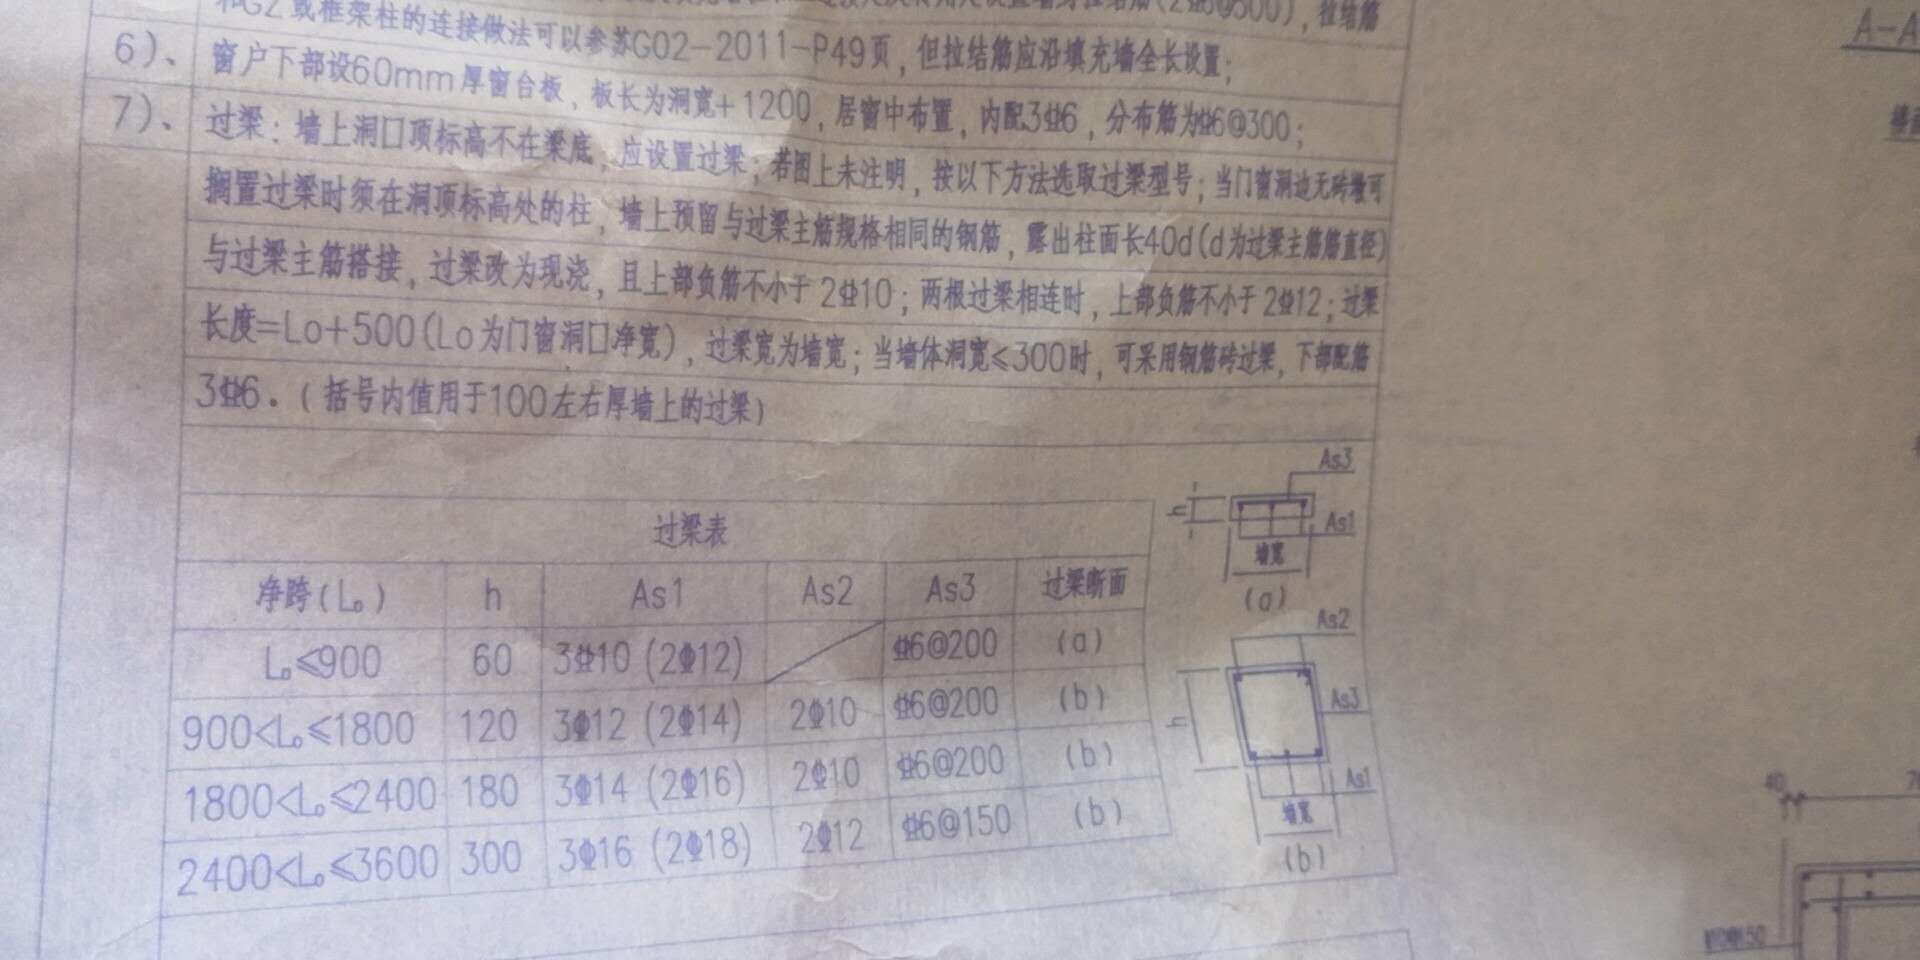 和GZ或框架柱的连接做法可以参苏G02-2011-P49页，但拉结筋应沿填充墙全长设置；
6)、窗户下部设60mm厚窗台板，板长为洞宽+1200，居窗中布置，内配3⌀6，分布筋为⌀6@300；
7)、过梁：墙上洞口顶标高不在梁底，应设置过梁；若图上未注明，按以下方法选取过梁型号；当门窗洞边无砖墩可
搁置过梁时须在洞顶标高处的柱，墙上预留与过梁主筋规格相同的钢筋，露出柱面长40d(d为过梁主筋筋直径)
与过梁主筋搭接，过梁改为现浇，且上部负筋不小于2⌀10；两根过梁相连时，上部负筋不小于2⌀12；过梁
长度=Lo+500(Lo为门窗洞口净宽)，过梁宽为墙宽；当墙体洞宽≤300时，可采用钢筋砖过梁，下部配筋
3⌀6.（括号内值用于100左右厚墙上的过梁）
过梁表
净跨(L₀) h As1 As2 As3 过梁断面
L₀≤900 60 3⌀10 (2⌀12) ⌀6@200 (a)
900<L₀≤1800 120 3⌀12 (2⌀14) 2⌀10 ⌀6@200 (b)
1800<L₀≤2400 180 3⌀14 (2⌀16) 2⌀10 ⌀6@200 (b)
2400<L₀≤3600 300 3⌀16 (2⌀18) 2⌀12 ⌀6@150 (b)
As3
h
As1
墙宽
(a)
As2
h
As3
As1
墙宽
(b)
A-A
40